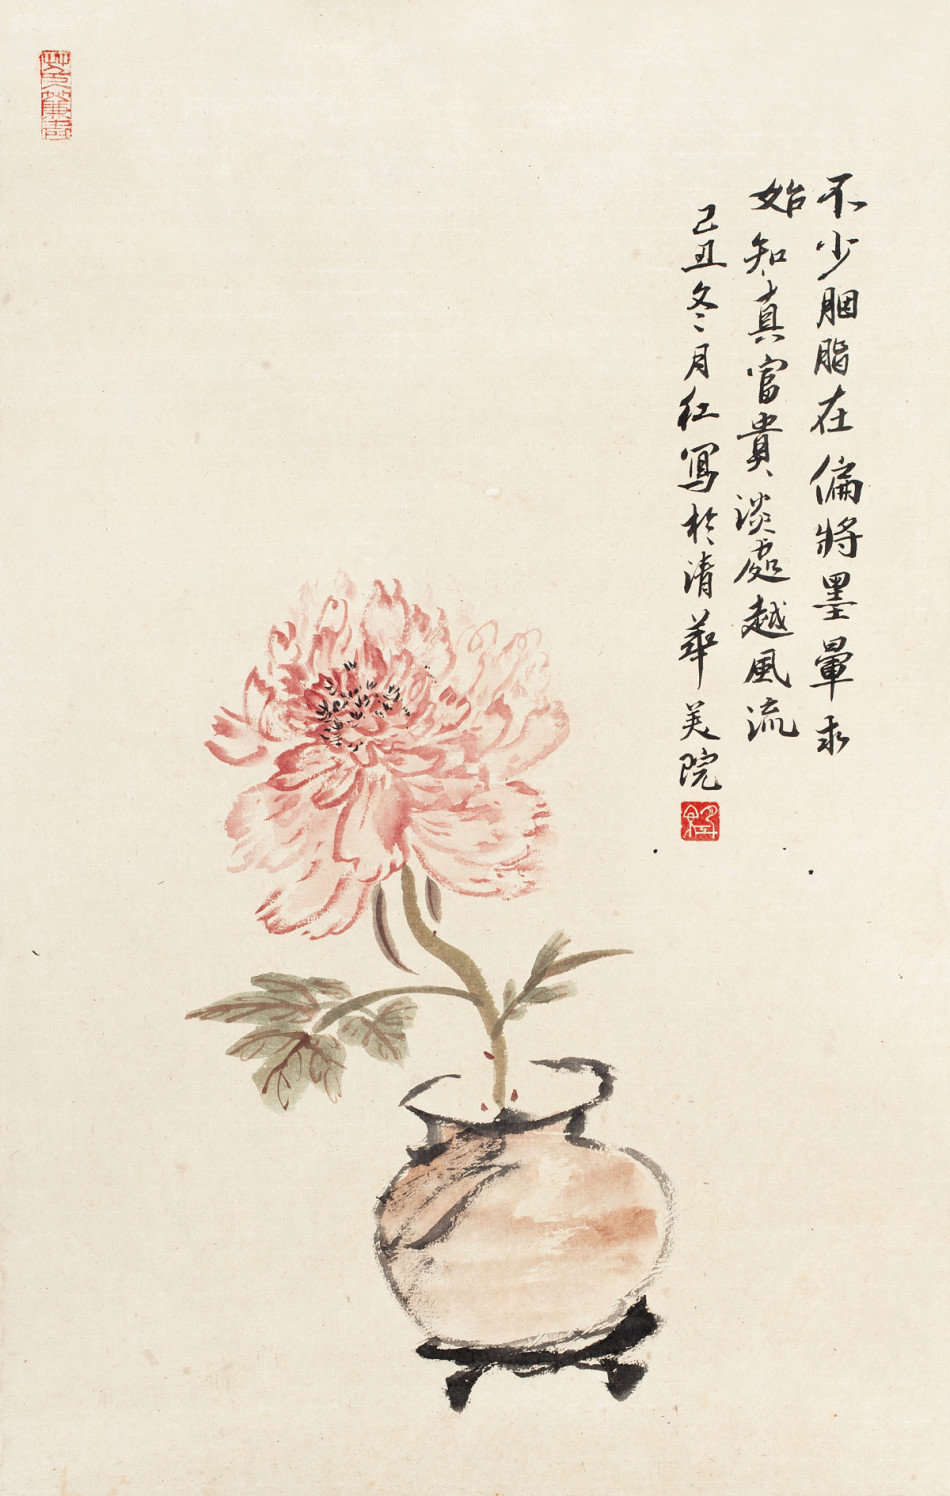 不少胭脂在偏將墨暈求
始知真富貴淡處越風流
己丑冬月紅寫於清華美院